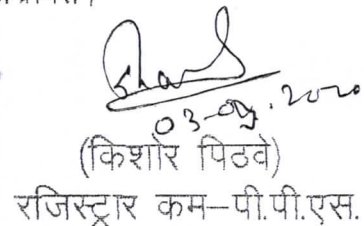 03-09-2020
(किशोर पिठवे)
रजिस्ट्रार कम–पी.पी.एस.